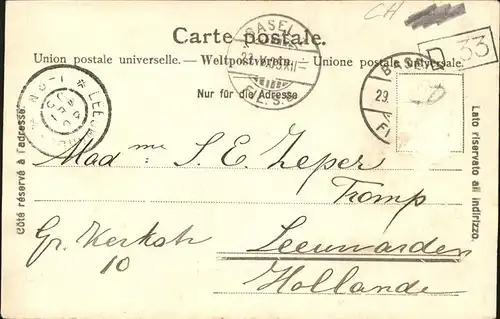 CH
Carte postale.
Union postale universelle. — Weltpostverein. — Unione postale universale.
Nur für die Adresse
D 33
BASEL
BASEL
29.
Côté réservé à l'adresse.
Lato riservato all indirizzo.
Mad me S. E. Zeper
Tromp
Gr. Kerkstr Leeuwarden
10 Hollande